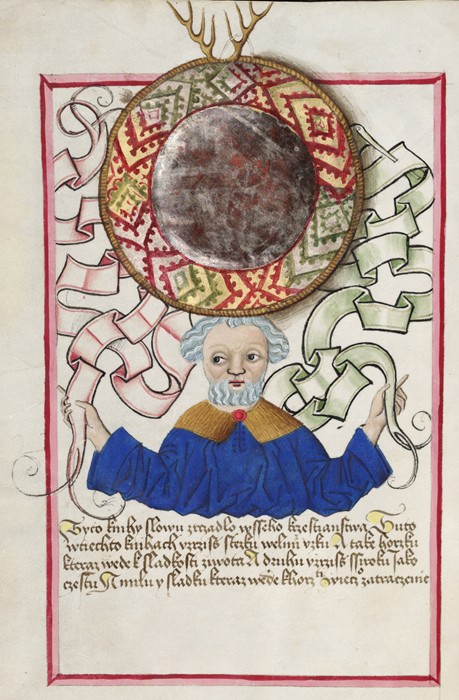 Tyto knihy slowu zrzadlo wsseho krzestianstwa Tuto
w tiechto knihach vzrziss stezku welmi vzku A take horzku
kteraz wede k sladkosti zwota A druhu vzrziss ssiroku Jako
czestu A milu y sladku kteraz wede k horzk wieczi zatraczenie